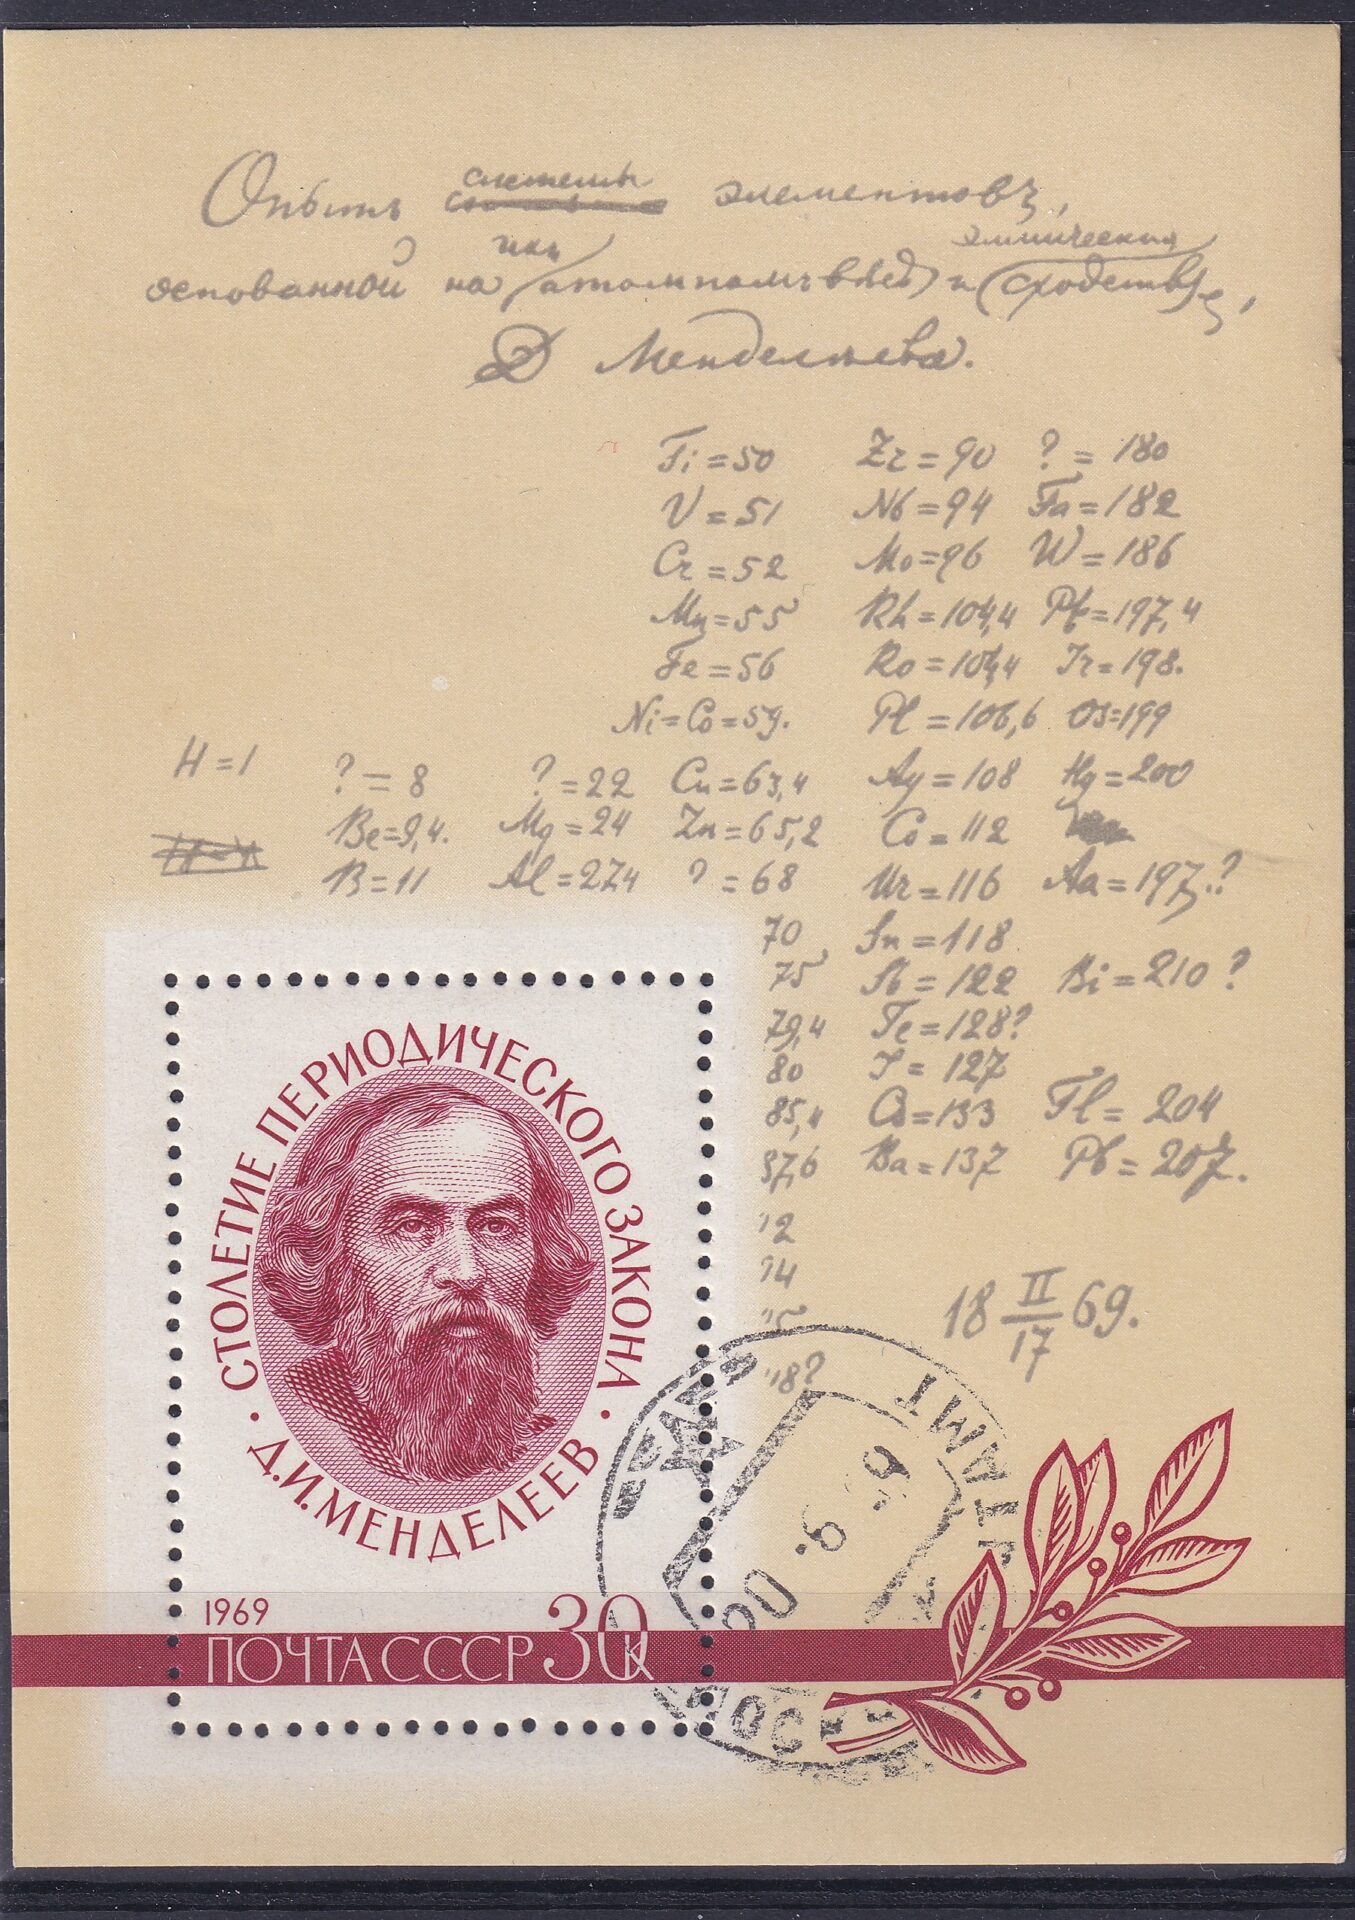 Опытъ системы элементовъ,
основанной на ихъ атомномъ вѣсѣ и химическомъ сходствѣ,
Д Менделѣева.
Ti = 50 Zr = 90 ? = 180
V = 51 Nb = 94 Ta = 182
Cr = 52 Mo = 96 W = 186
Mn = 55 Rh = 104,4 Pt = 197,4
Fe = 56 Ro = 104,4 Ir = 198.
Ni = Co = 59. Pl = 106,6 Os = 199
H = 1 ? = 8 ? = 22 Cu = 63,4 Ag = 108 Hg = 200
Be = 9,4. Mg = 24 Zn = 65,2 Cd = 112
B = 11 Al = 27,4 ? = 68 Ur = 116 Au = 197.?
70 Sn = 118
75 Sb = 122 Bi = 210?
79,4 Te = 128?
80 I = 127
85,4 Cs = 133 Tl = 204
87,6 Ba = 137 Pb = 207.
"2
"4
"5
"8?
18 II/17 69.
СТОЛЕТИЕ ПЕРИОДИЧЕСКОГО ЗАКОНА
• Д.И.МЕНДЕЛЕЕВ •
1969
ПОЧТА СССР 30К